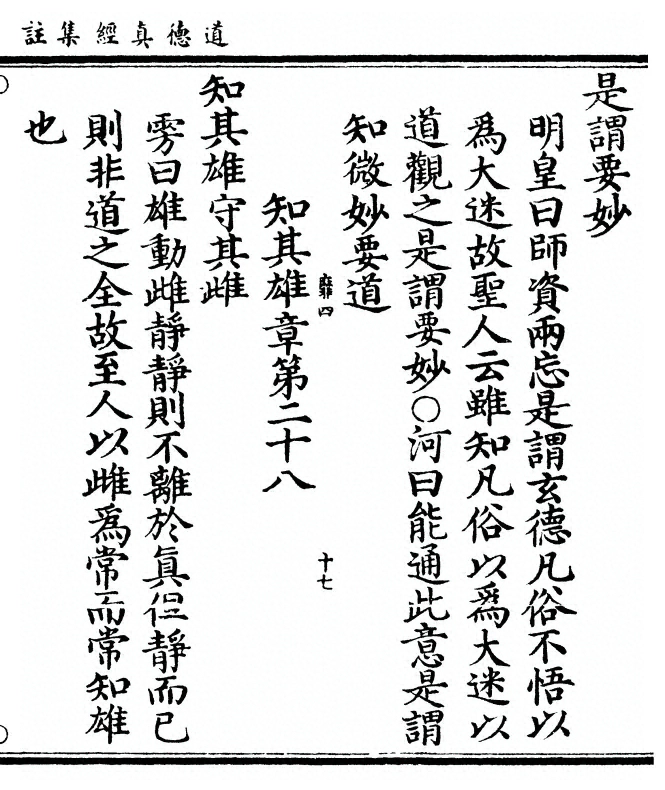 道德真經集註
是謂要妙
明皇曰師資兩忘是謂玄德凡俗不悟以
為大迷故聖人云雖知凡俗以為大迷以
道觀之是謂要妙〇河曰能通此意是謂
知微妙要道
靡四
十七
知其雄章第二十八
知其雄守其雌
雱曰雄動雌靜靜則不離於真但靜而已
則非道之全故至人以雌為常而常知雄
也